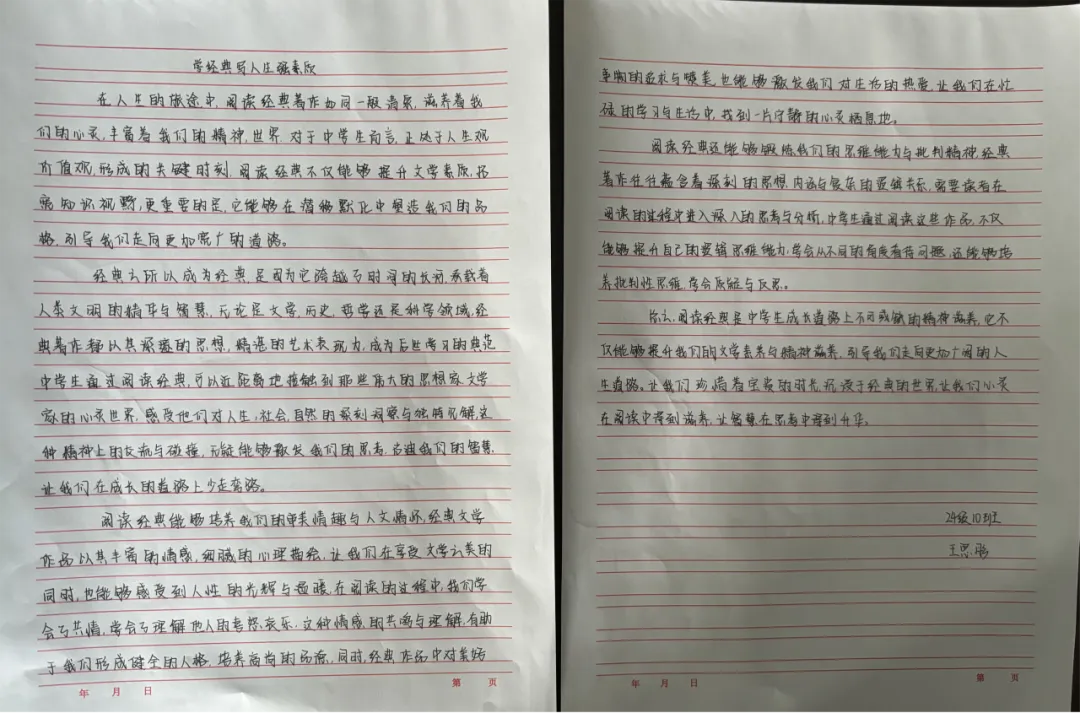 学经典写人生强素质
在人生的旅途中,阅读经典著作如同一股清泉,滋养着我
们的心灵,丰富着我们的精神世界.对于中学生而言,正处于人生观
价值观,形成的关键时刻.阅读经典不仅能够提升文学素质,拓
宽知识视野,更重要的是,它能够在潜移默化中塑造我们的品
格,引导我们走向更加宽广的道路。
经典之所以成为经典,是因为它跨越了时间的长河,承载着
人类文明的精华与智慧,无论是文学,历史,哲学还是科学领域,经
典著作都以其深邃的思想,精湛的艺术表现力,成为后世学习的典范
中学生通过阅读经典,可以近距离地接触到那些伟大的思想家文学
家的心灵世界,感受他们对人生,社会,自然的深刻洞察与独特见解,这
种精神上的交流与碰撞,无疑能够激发我们的思考,启迪我们的智慧,
让我们在成长的道路上少走弯路。
阅读经典能够培养我们的审美情趣与人文情怀,经典文学
作品以其丰富的情感,细腻的心理描绘,让我们在享受文学之美的
同时,也能够感受到人性的光辉与温暖,在阅读的过程中,我们学
会了共情,学会了理解他人的喜怒哀乐,这种情感的共鸣与理解,有助
于我们形成健全的人格,培养高尚的品德,同时,经典作品中对美好
事物的追求与赞美,也能够激发我们对生活的热爱,让我们在忙
碌的学习与生活中,找到一片宁静的心灵栖息地。
阅读经典还能够锻炼我们的思维能力与批判精神,经典
著作往往蕴含着深刻的思想,内涵与复杂的逻辑关系,需要读者在
阅读的过程中进入深入的思考与分析,中学生通过阅读这些作品,不仅
能够提升自己的逻辑思维能力,学会从不同的角度看待问题,还能够培
养批判性思维,学会质疑与反思。
综之,阅读经典是中学生成长道路上不可或缺的精神滋养,它不
仅能够提升我们的文学素养与精神滋养,引导我们走向更加广阔的人
生道路,让我们珍惜着宝贵的时光,沉浸于经典的世界,让我们心灵
在阅读中得到滋养,让智慧在思考中得到升华。
24级10班
王思
年 月 日
第 页
年 月 日
第 页